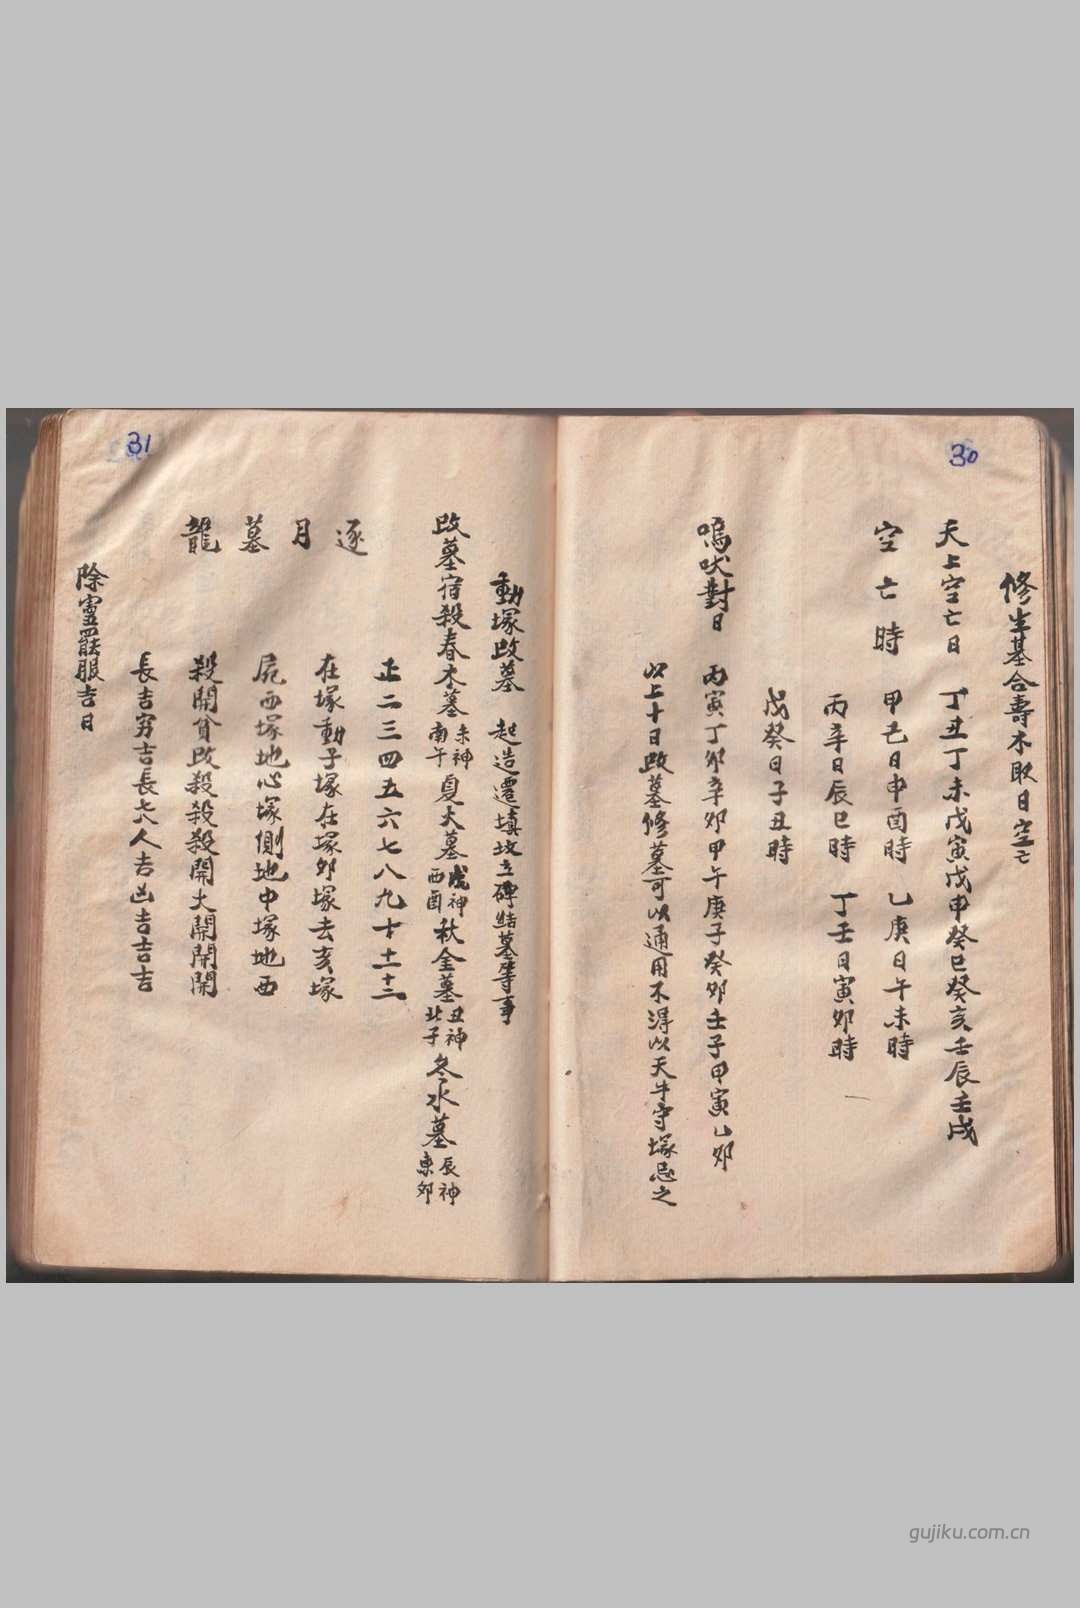 30
修生基合壽木取日空亡
天上空亡日 丁丑丁未戊寅戊申癸巳癸亥壬辰壬戌
空亡時 甲己日申酉時 乙庚日午未時
丙辛日辰巳時 丁壬日寅卯時
戊癸日子丑時
鳴吠對日 丙寅丁卯辛卯甲午庚子癸卯壬子甲寅乙卯
以上十日改墓修墓可以通用不得以天牛守塚忌之
31
動塚改墓 起造遷填坟立碑結墓等事
改墓宿殺春木墓未神南午夏火墓戌神西酉秋金墓丑神北子冬水墓辰神東卯
正二三四五六七八九十十一十二
在塚動子塚在塚卯塚去亥塚
逐月墓龍
屍西塚地心塚側地中塚地西
殺開貧改殺殺殺開大開開開
長吉穷吉長人吉凶吉吉吉
除靈罷服吉日
gujiku.com.cn